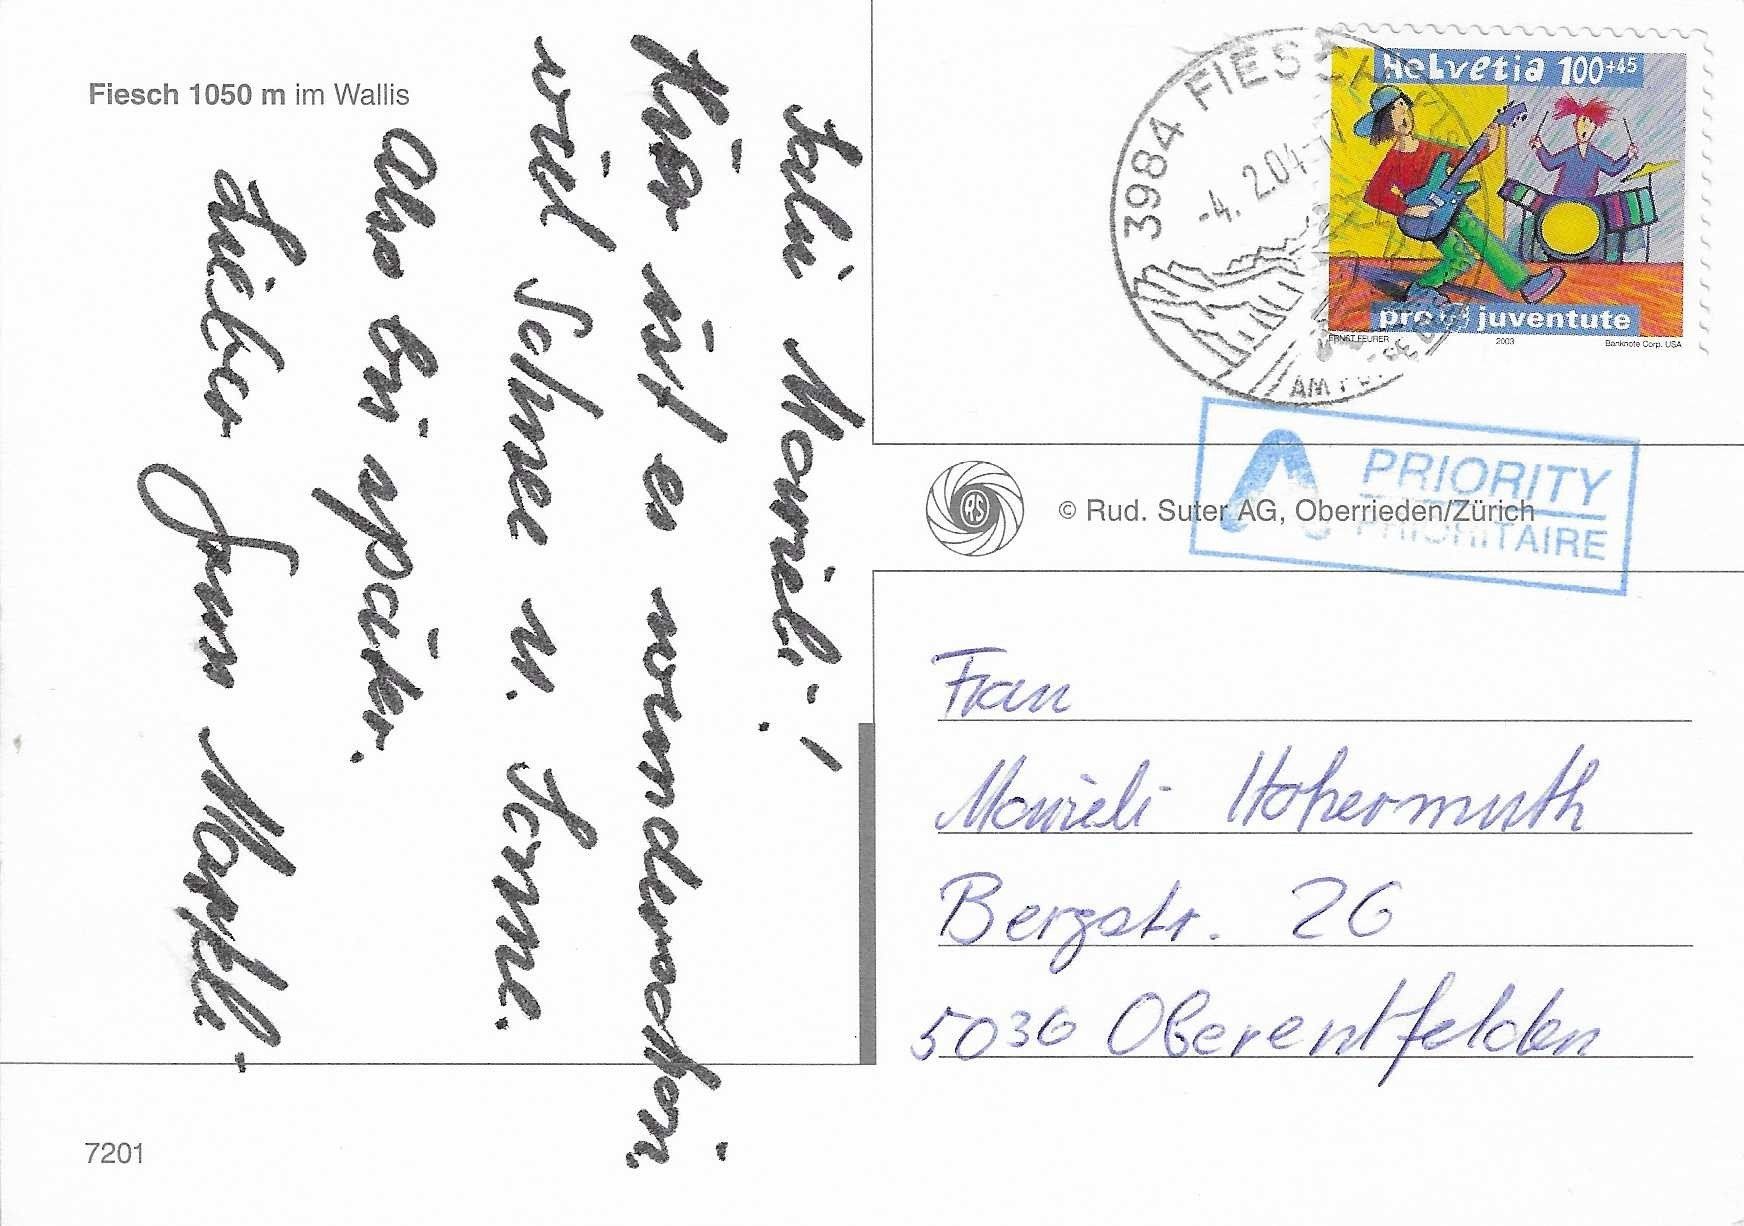 Fiesch 1050 m im Wallis
Salü Monieli!
Hier ist es wunderschön.
viel Schnee u. Sonne.
Also bis später.
Lieber Gruss
3984 FIESCH
-4. 2.04
AM
Helvetia 100+45
pro juventute
ERNST FEURER 2003 Banknote Corp. USA
PRIORITY
PRIORITAIRE
RS
© Rud. Suter AG, Oberrieden/Zürich
Frau
Monieli Hohermuth
Bergstr. 26
5036 Oberentfelden
7201